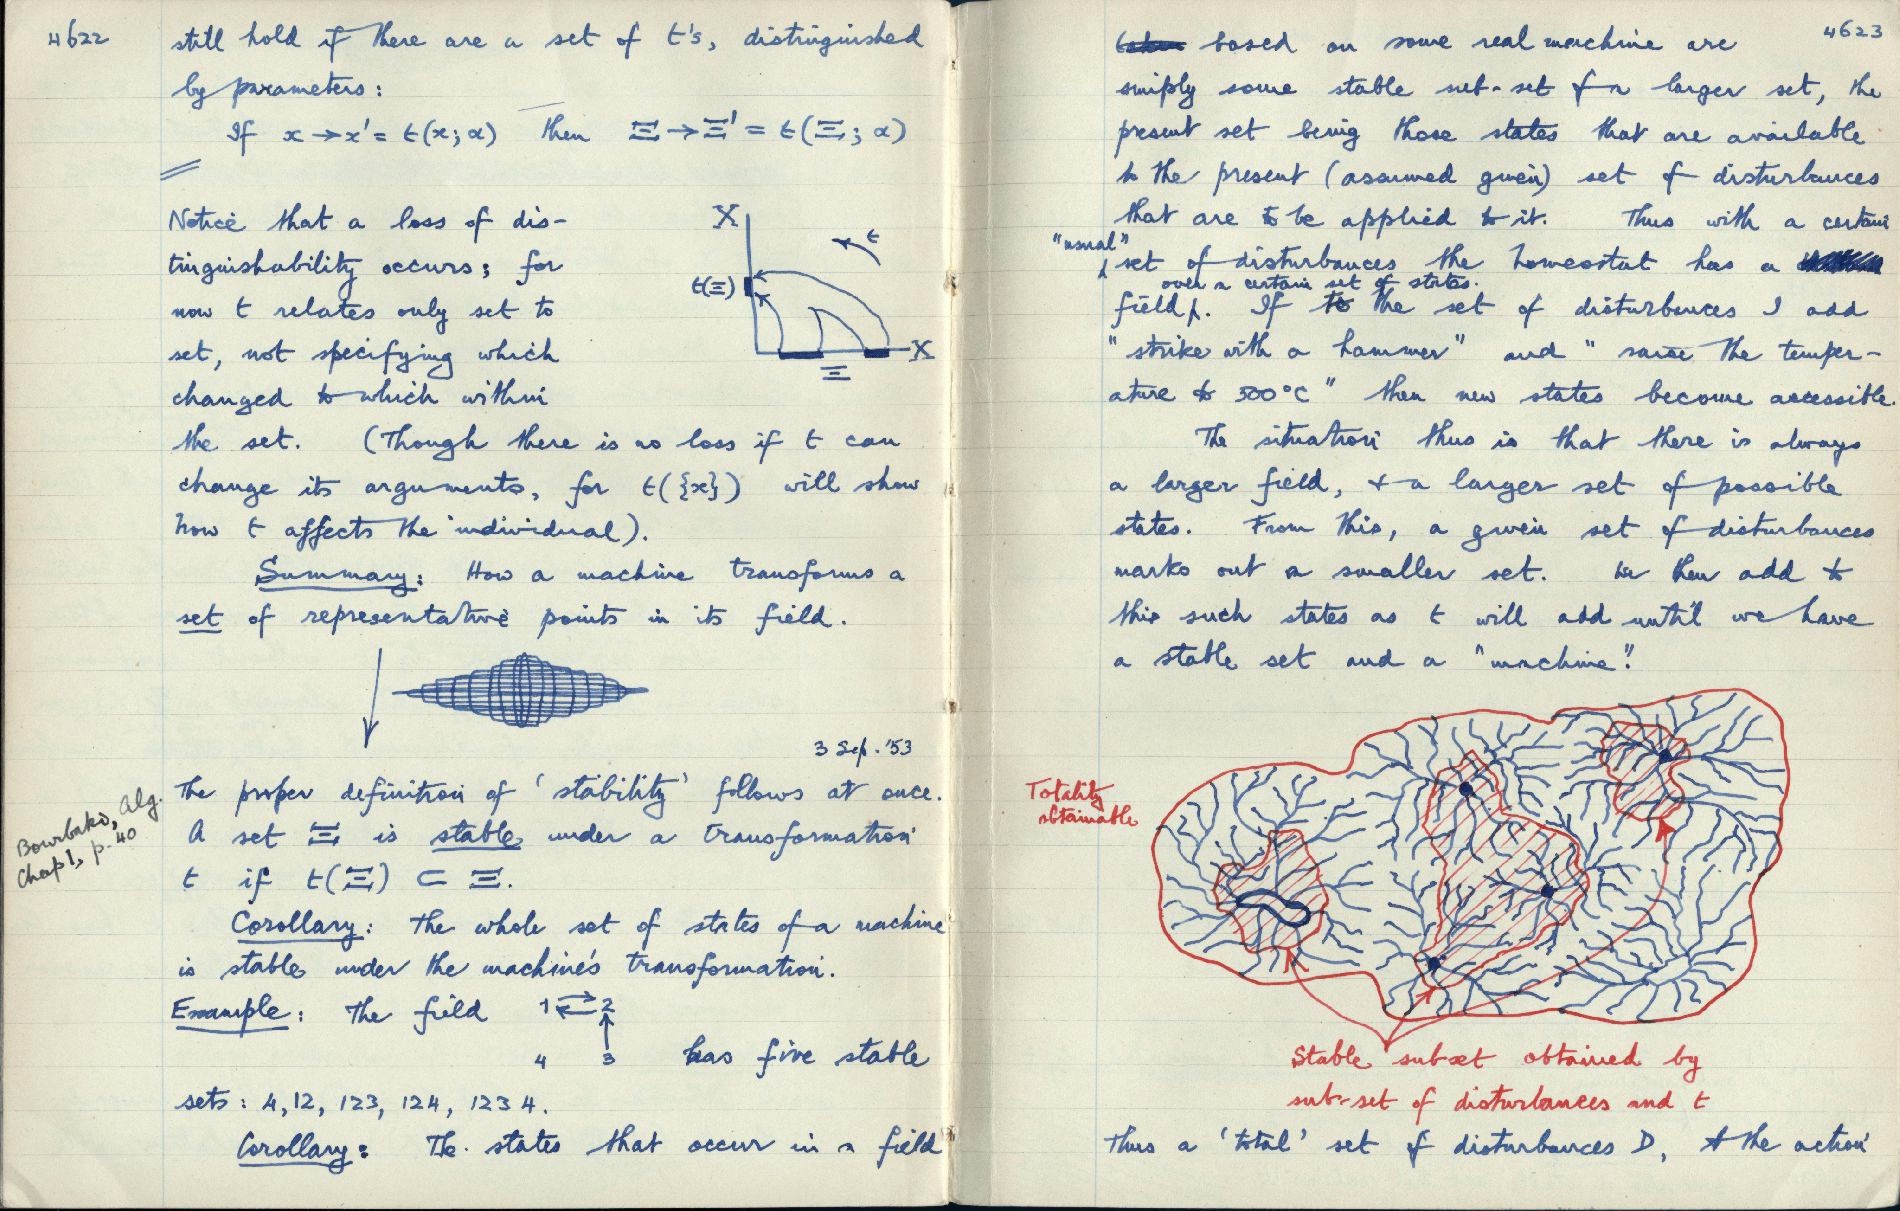 4622
still hold if there are a set of t's, distinguished
by parameters:
If x → x' = t(x; α) then Ξ → Ξ' = t(Ξ; α)
Notice that a loss of dis-
tinguishability occurs; for
now t relates only set to
set, not specifying which
changed to which within
the set. (Though there is no loss if t can
change its arguments, for t({x}) will show
how t affects the individual).
X
t
t(Ξ)
X
Ξ
Summary: How a machine transforms a
set of representative points in its field.
3 Sep. '53
The proper definition of 'stability' follows at once.
A set Ξ is stable under a transformation
t if t(Ξ) ⊂ Ξ.
Bourbaki, Alg.
Chap 1, p. 40
Corollary: The whole set of states of a machine
is stable under the machine's transformation.
Example: The field 1 ⇄ 2
↑
4 3 has five stable
sets: 4, 12, 123, 124, 1234.
Corollary: The states that occur in a field
4623
based on some real machine are
simply some stable sub-set of a larger set, the
present set being those states that are available
to the present (assumed given) set of disturbances
that are to be applied to it. Thus with a certain
"usual"
set of disturbances the homeostat has a
over a certain set of states.
field. If to the set of disturbances I add
"strike with a hammer" and "raise the temper-
ature to 500°C" then new states become accessible.
The situation thus is that there is always
a larger field, & a larger set of possible
states. From this, a given set of disturbances
marks out a smaller set. We then add to
this such states as t will add until we have
a stable set and a "machine".
Totality
obtainable
Stable subset obtained by
sub-set of disturbances and t
Thus a 'total' set of disturbances D, & the action